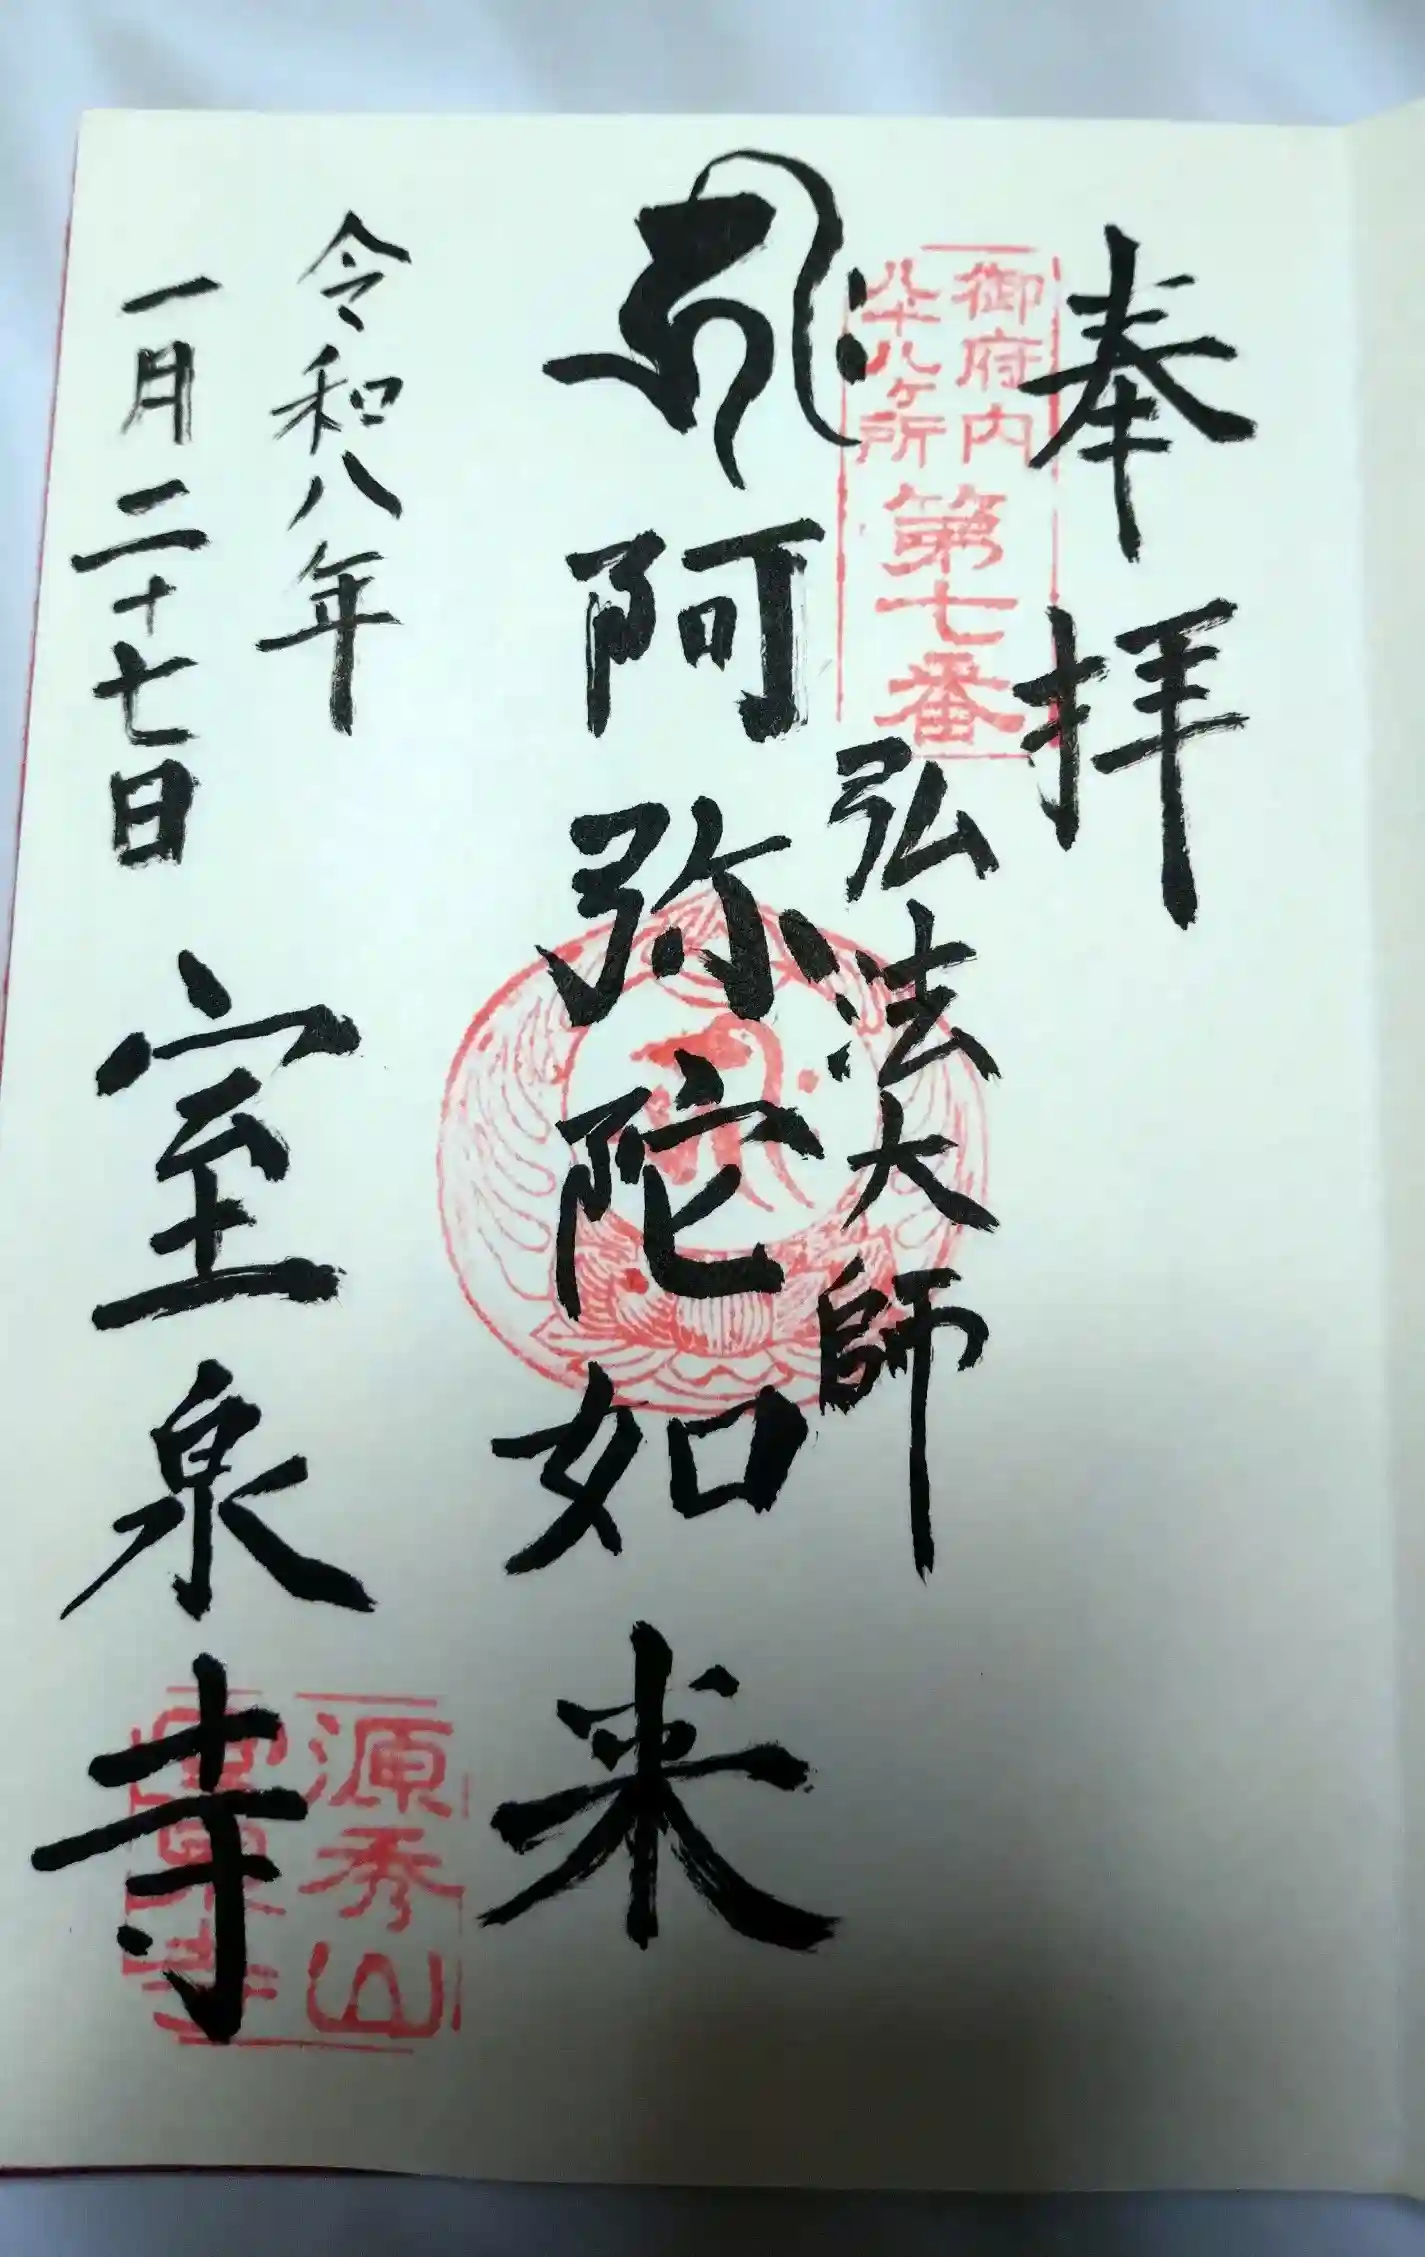 奉拝
御府内
八十八ヶ所
第七番
弘法大師
阿弥陀如来
令和八年
一月二十七日
室泉寺
源秀山
室泉寺